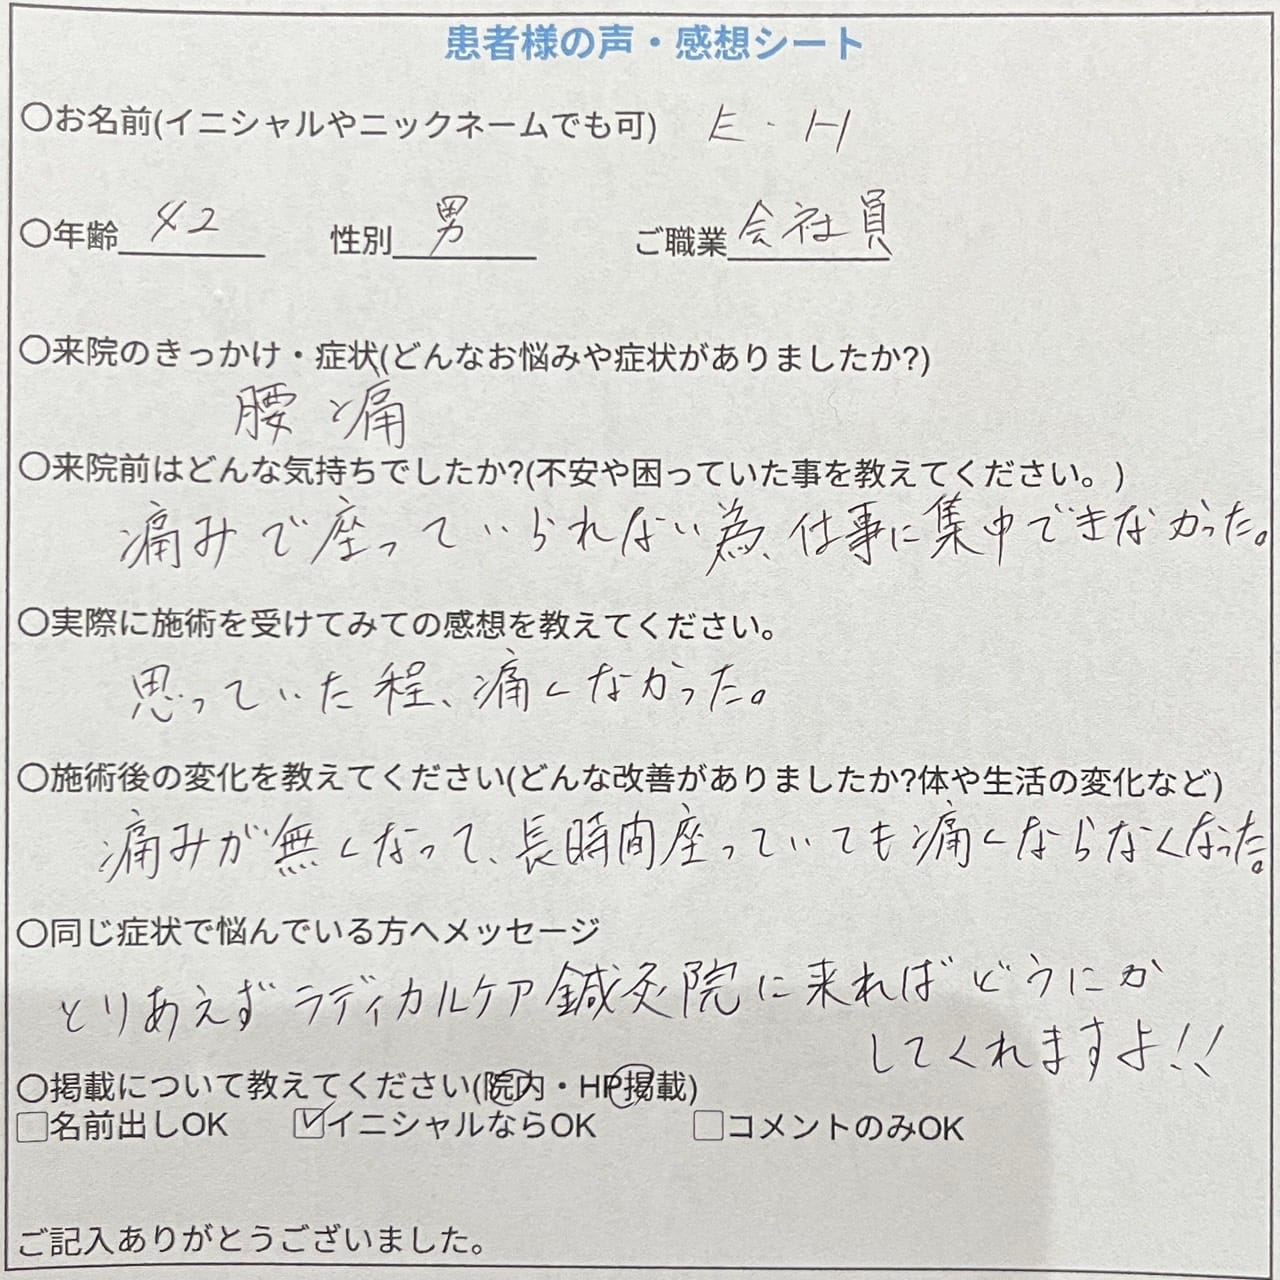 患者様の声・感想シート
〇お名前(イニシャルやニックネームでも可) E・H
〇年齢 42 性別 男 ご職業 会社員
〇来院のきっかけ・症状(どんなお悩みや症状がありましたか?)
腰痛
〇来院前はどんな気持ちでしたか?(不安や困っていた事を教えてください。)
痛みで座っていられない為、仕事に集中できなかった。
〇実際に施術を受けてみての感想を教えてください。
思っていた程、痛くなかった。
〇施術後の変化を教えてください(どんな改善がありましたか?体や生活の変化など)
痛みが無くなって、長時間座っていても痛くならなくなった。
〇同じ症状で悩んでいる方へメッセージ
とりあえずラディカルケア鍼灸院に来ればどうにか
してくれますよ!!
〇掲載について教えてください(院内・HP掲載)
□名前出しOK ☑イニシャルならOK □コメントのみOK
ご記入ありがとうございました。